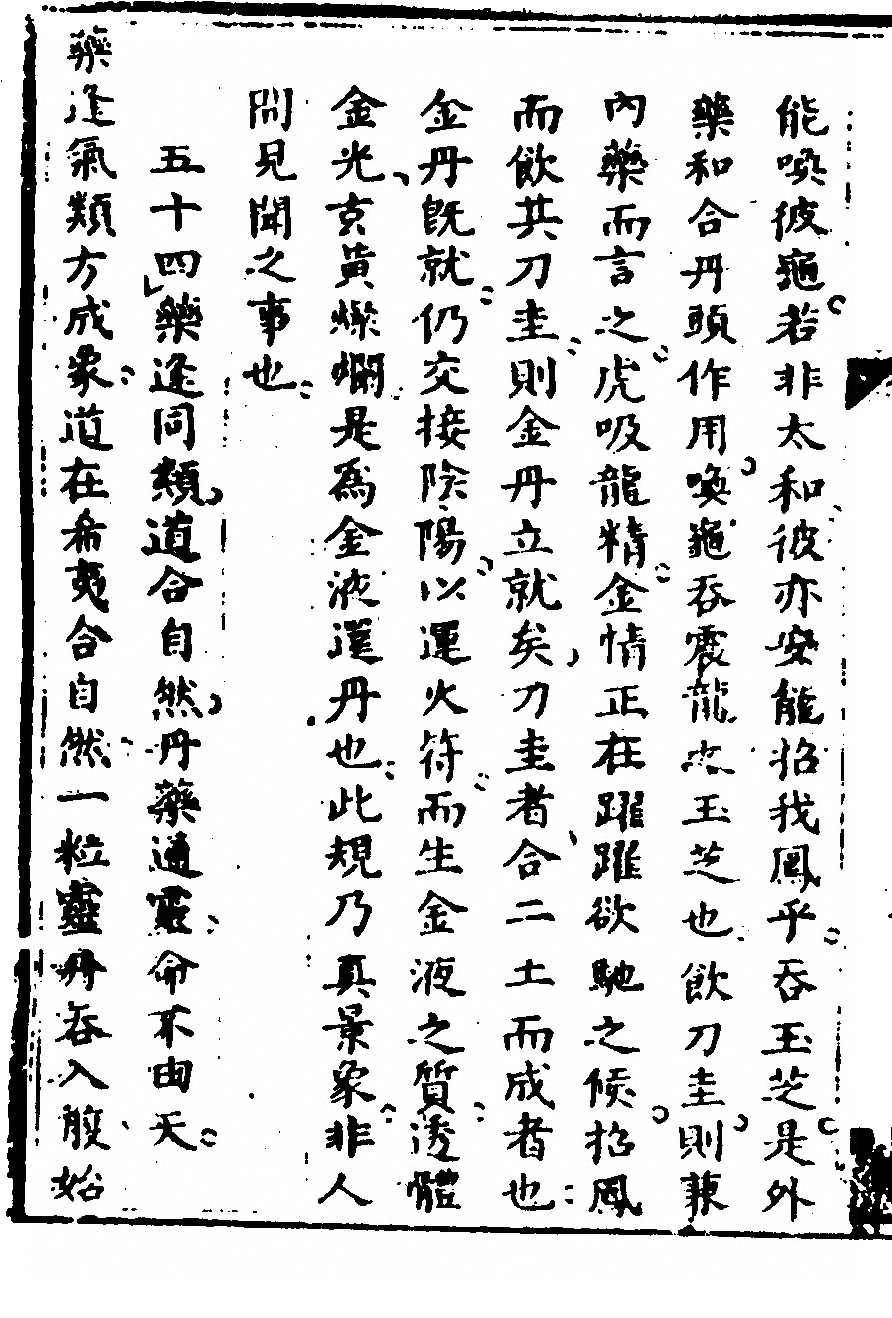 能喚彼龜若非太和彼亦安能招我鳳乎吞玉芝是外
藥和合丹頭作用喚龜吞震龍之玉芝也飲刀圭則兼
內藥而言之虎吸龍精金情正在躍躍欲馳之候招鳳
而飲其刀圭則金丹立就矣刀圭者合二土而成者也
金丹旣就仍交接陰陽以運火符而生金液之質透體
金光玄黃燦爛是爲金液還丹也此規乃真景象非人
間見聞之事也
五十四藥逢同類道合自然丹藥通靈命不由天
藥逢氣類方成象道在希夷合自然一粒靈丹吞入腹始